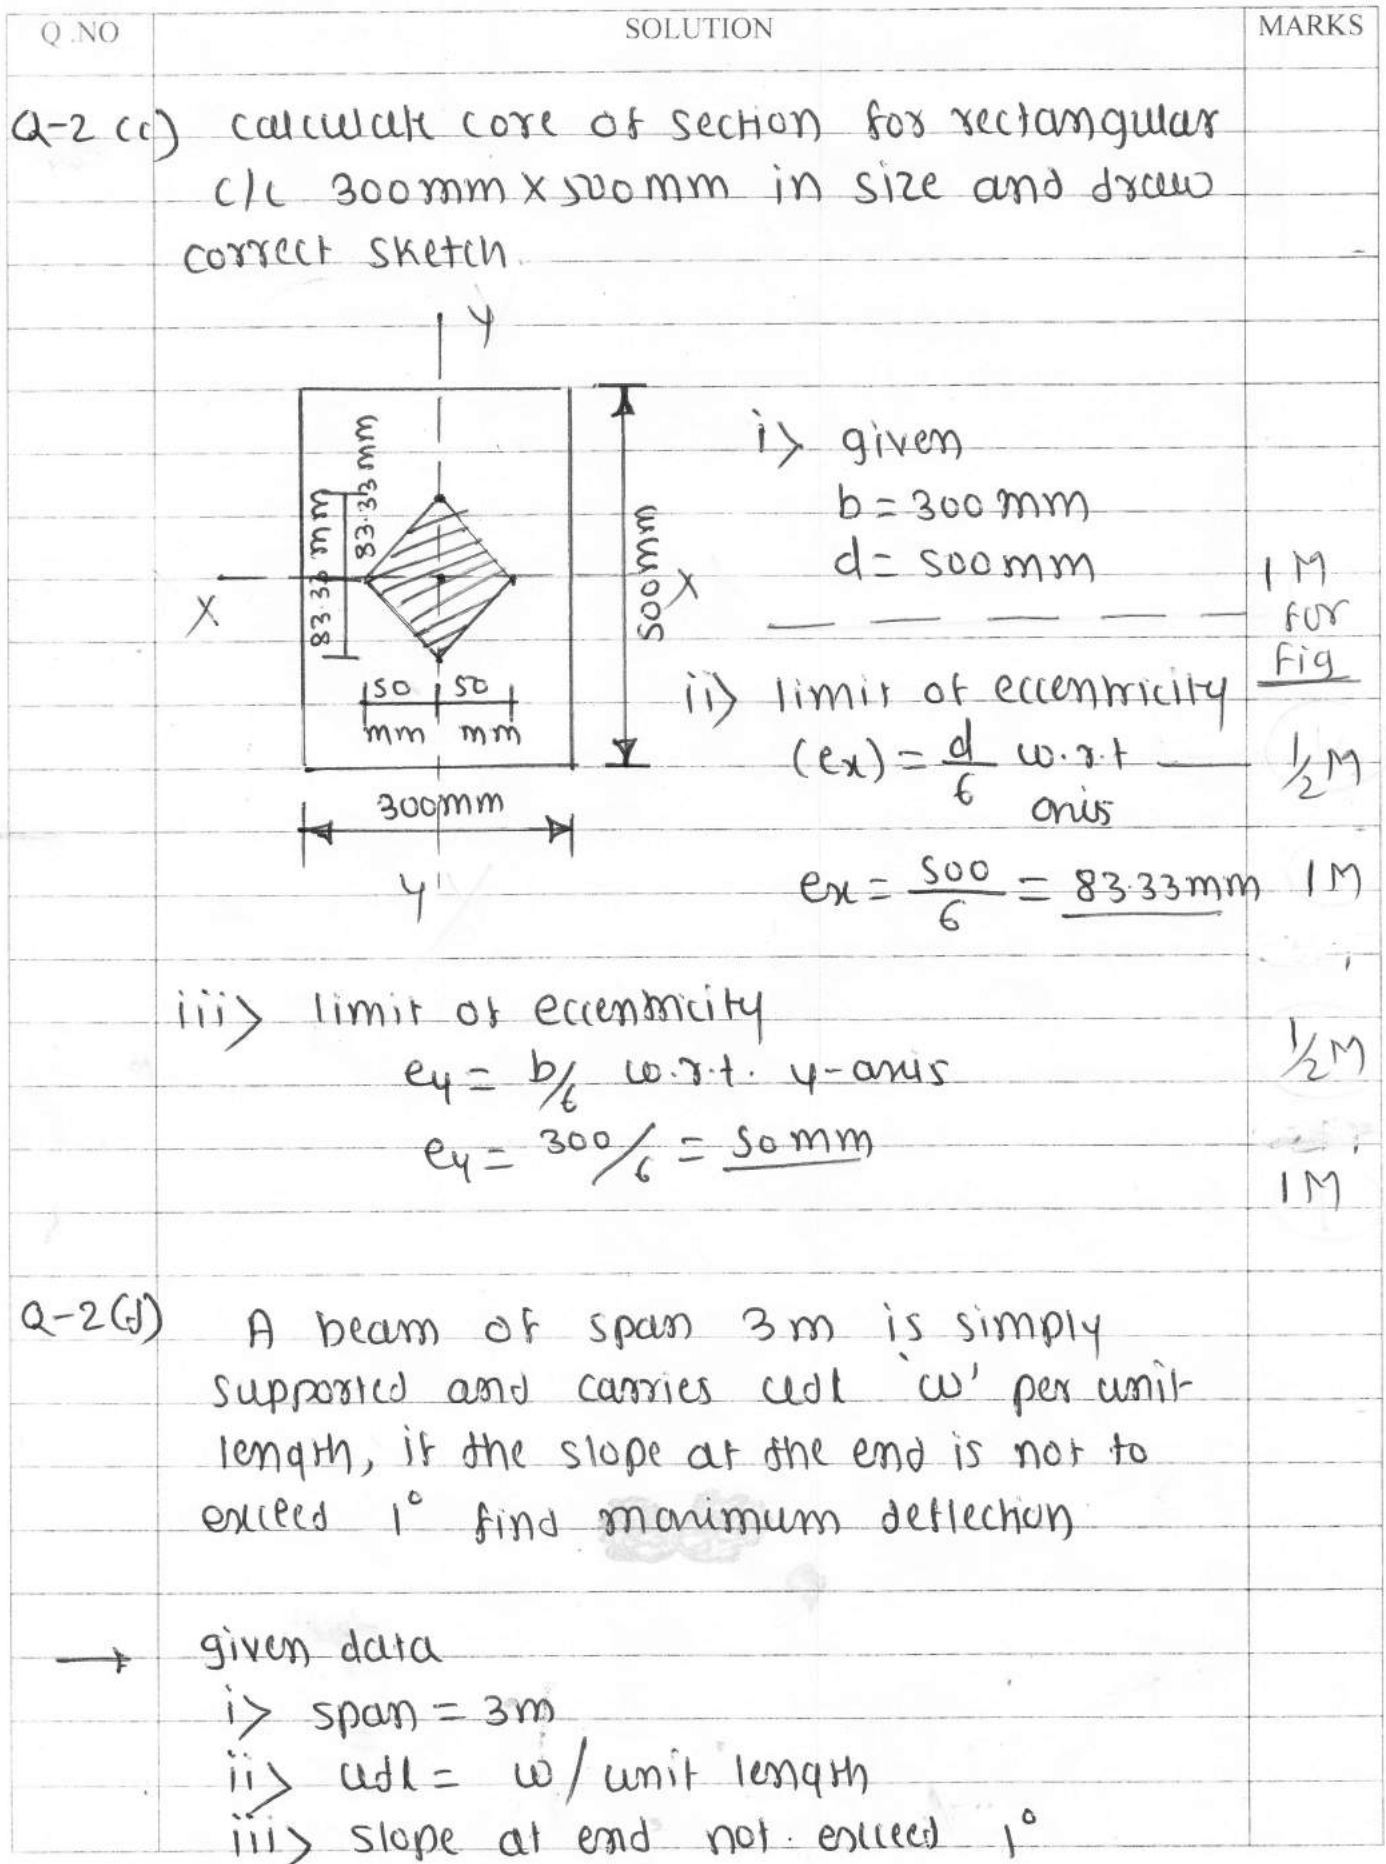 Q.NO SOLUTION MARKS
Q-2 (c) calculate core of section for rectangular
c/c 300mm X 500mm in size and draw
correct sketch.
Y
i> given
b = 300 mm
d = 500mm
83.33 mm
83.33 mm
500mm
X
X
1 M
for
Fig
50 50
mm mm
ii> limit of eccentricity
(ex) = d/6 w.r.t 1/2 M
axis
300mm
ex = 500/6 = 83.33mm 1 M
Y
iii> limit of eccentricity
ey = b/6 w.r.t. y-axis 1/2 M
ey = 300/6 = 50 mm
1 M
Q-2(d) A beam of span 3m is simply
supported and carries udl 'w' per unit
length, if the slope at the end is not to
exceed 1° find maximum deflection
→ given data
i> span = 3m
ii> udl = w / unit length
iii> slope at end not exceed 1°